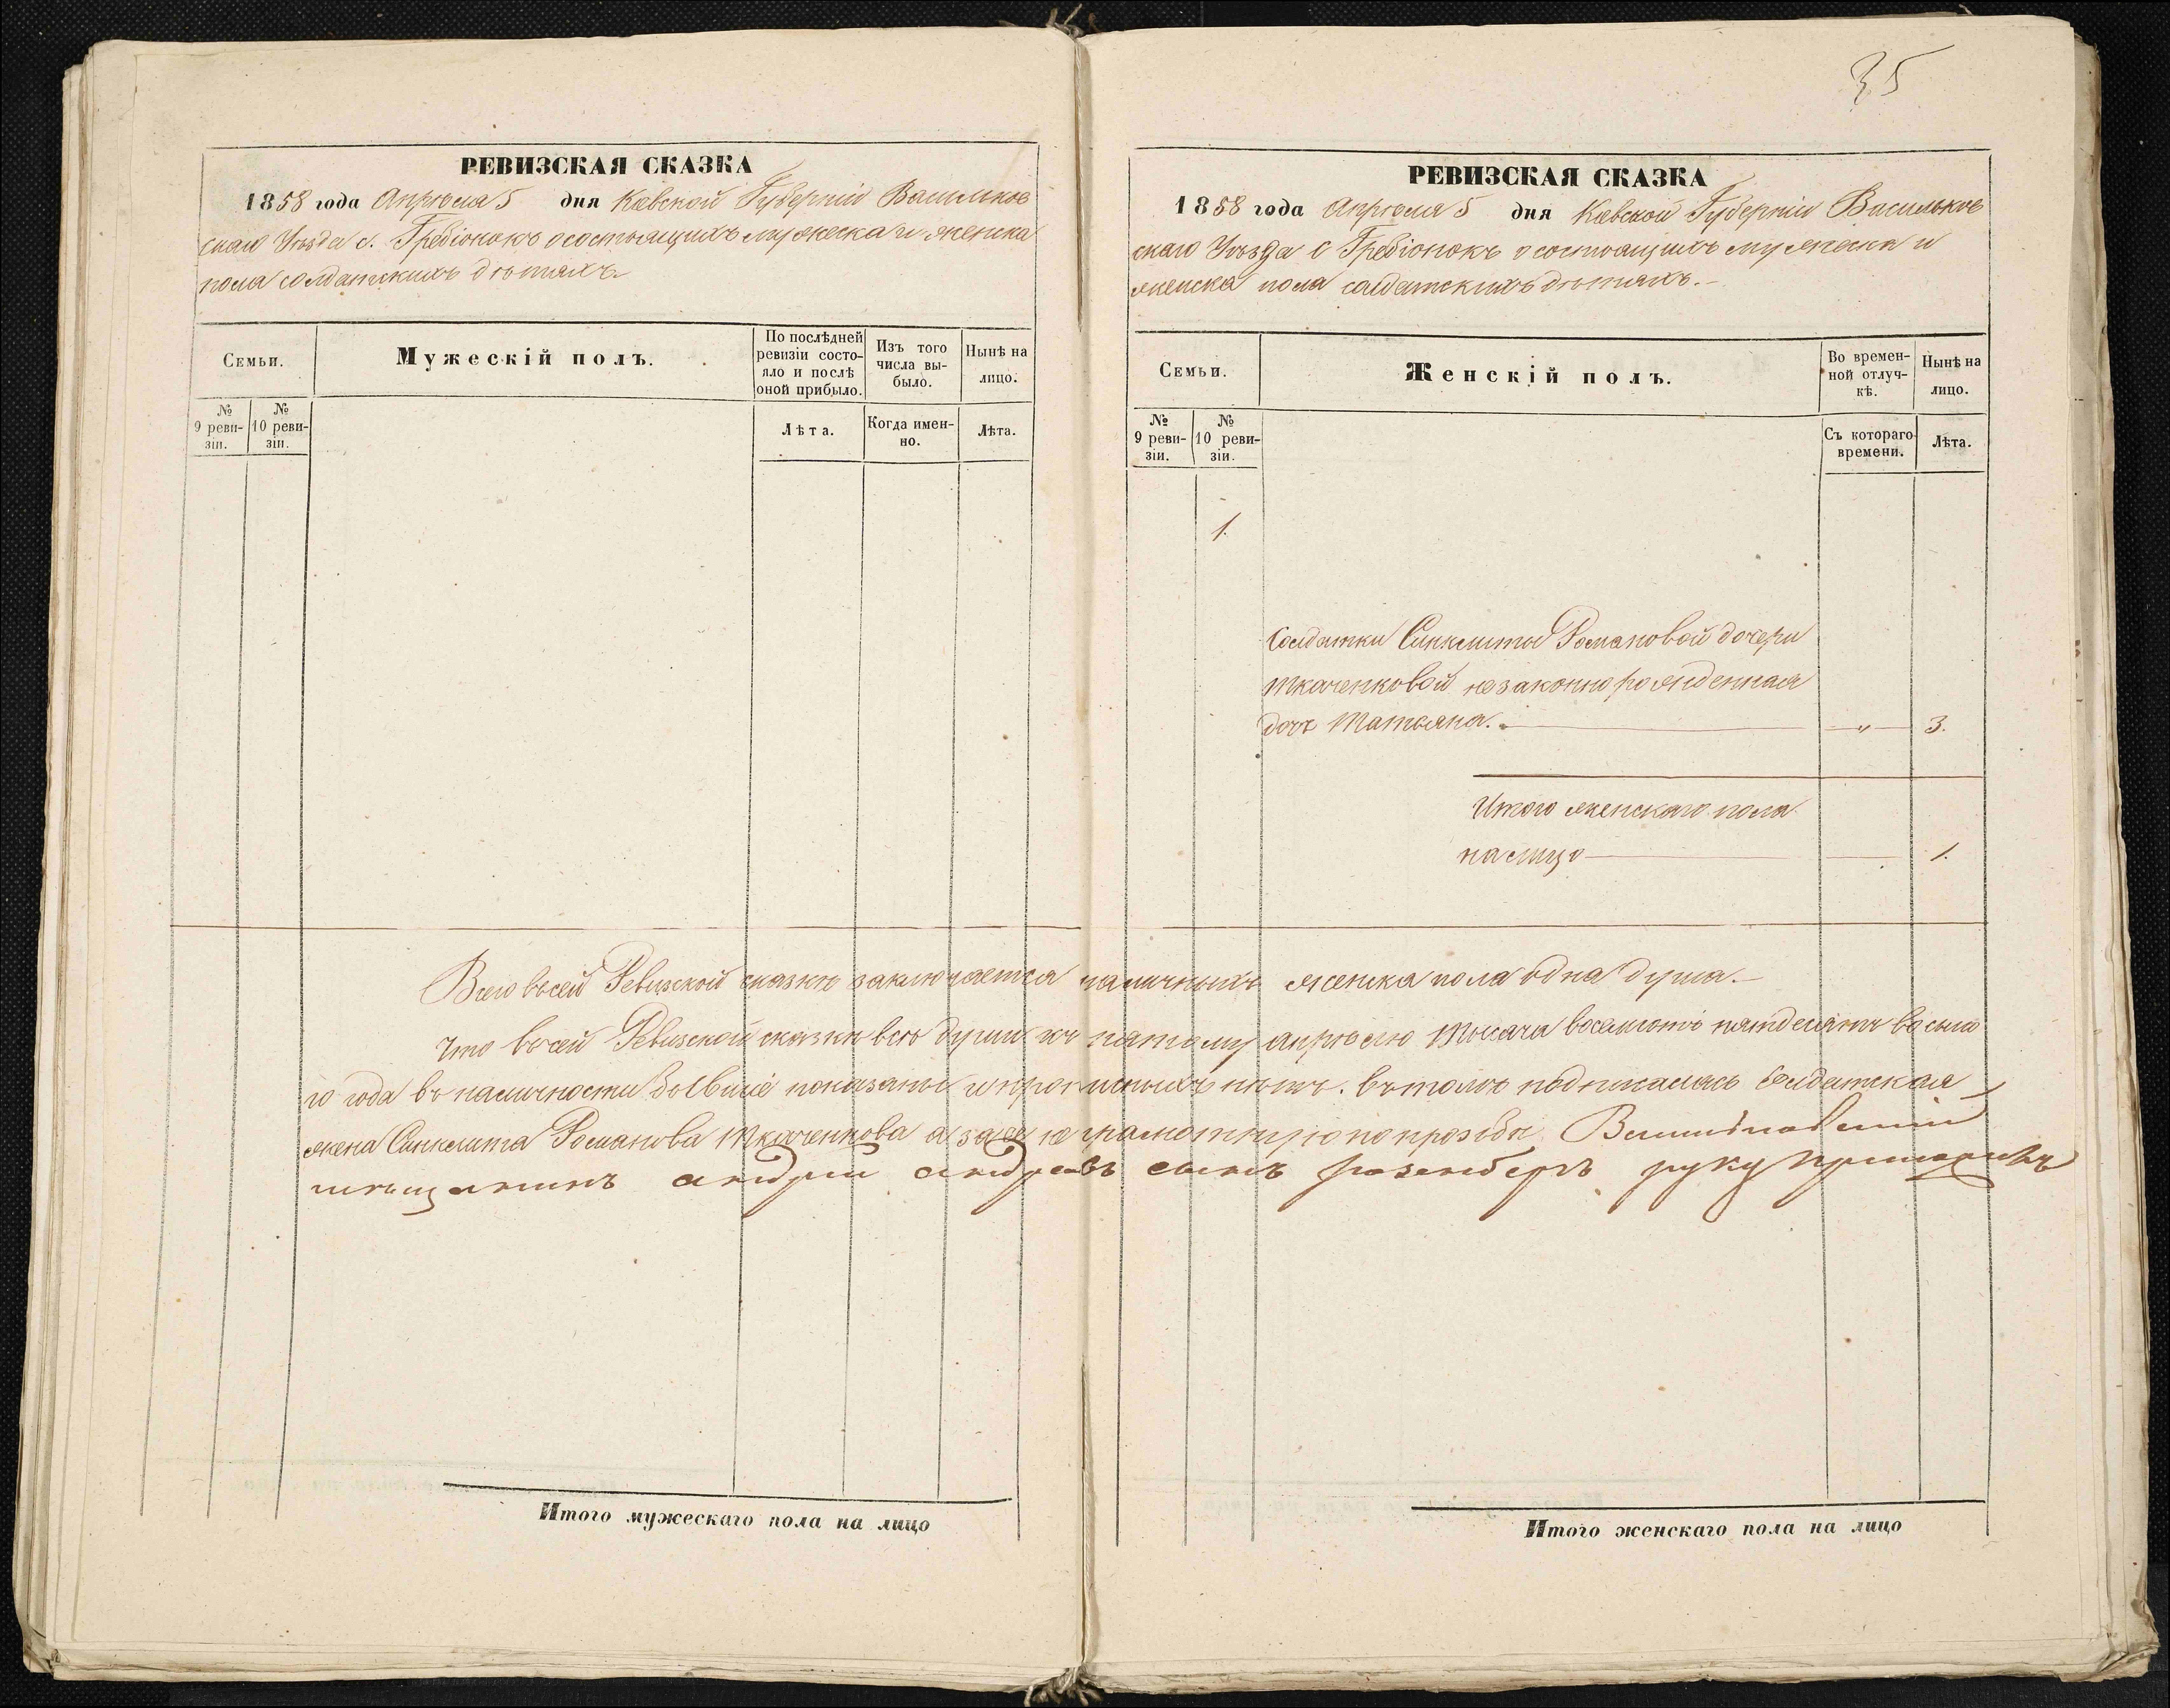 35
РЕВИЗСКАЯ СКАЗКА
1858 года Апрѣля 5 дня Кіевской Губерніи Васильков
скаго Уѣзда с. Гребіонокъ о состоящихъ мужеска и женска
пола солдатскихъ дѣтяхъ.
Семьи.
Мужескій полъ.
По послѣдней ревизіи состояло и послѣ оной прибыло.
Изъ того числа выбыло.
Нынѣ на лицо.
№ 9 ревизіи.
№ 10 ревизіи.
Лѣта.
Когда именно.
Лѣта.
Итого мужескаго пола на лицо
РЕВИЗСКАЯ СКАЗКА
1858 года Апрѣля 5 дня Кіевской Губерніи Васильков
скаго Уѣзда с Гребіонокъ о состоящихъ мужеска и
женска пола солдатскихъ дѣтяхъ.-
Семьи.
Женскій полъ.
Во временной отлучкѣ.
Нынѣ на лицо.
№ 9 ревизіи.
№ 10 ревизіи.
Съ котораго времени.
Лѣта.
1.
Солдатки Синклиты Романовой дочери
Ткаченковой незаконнорожденная
дочь Татьяна. — „ — 3.
Итого женскаго пола
на лицо — 1.
Всего въ сей Ревизской сказкѣ заключается наличныхъ женска пола одна душа.-
Что въ сей Ревизской сказкѣ всѣ души къ пятому апрѣлю тысяча восемсотъ пятдесятъ восьма
го года въ наличности бывшіе показаны и прописныхъ нѣтъ. въ томъ подписалась солдатская
жена Синклита Романова Ткаченкова а за ея неграмотную по прозьбѣ
мѣщанинъ андрей андреевъ сынъ розенберъ руку приложилъ
Итого женскаго пола на лицо